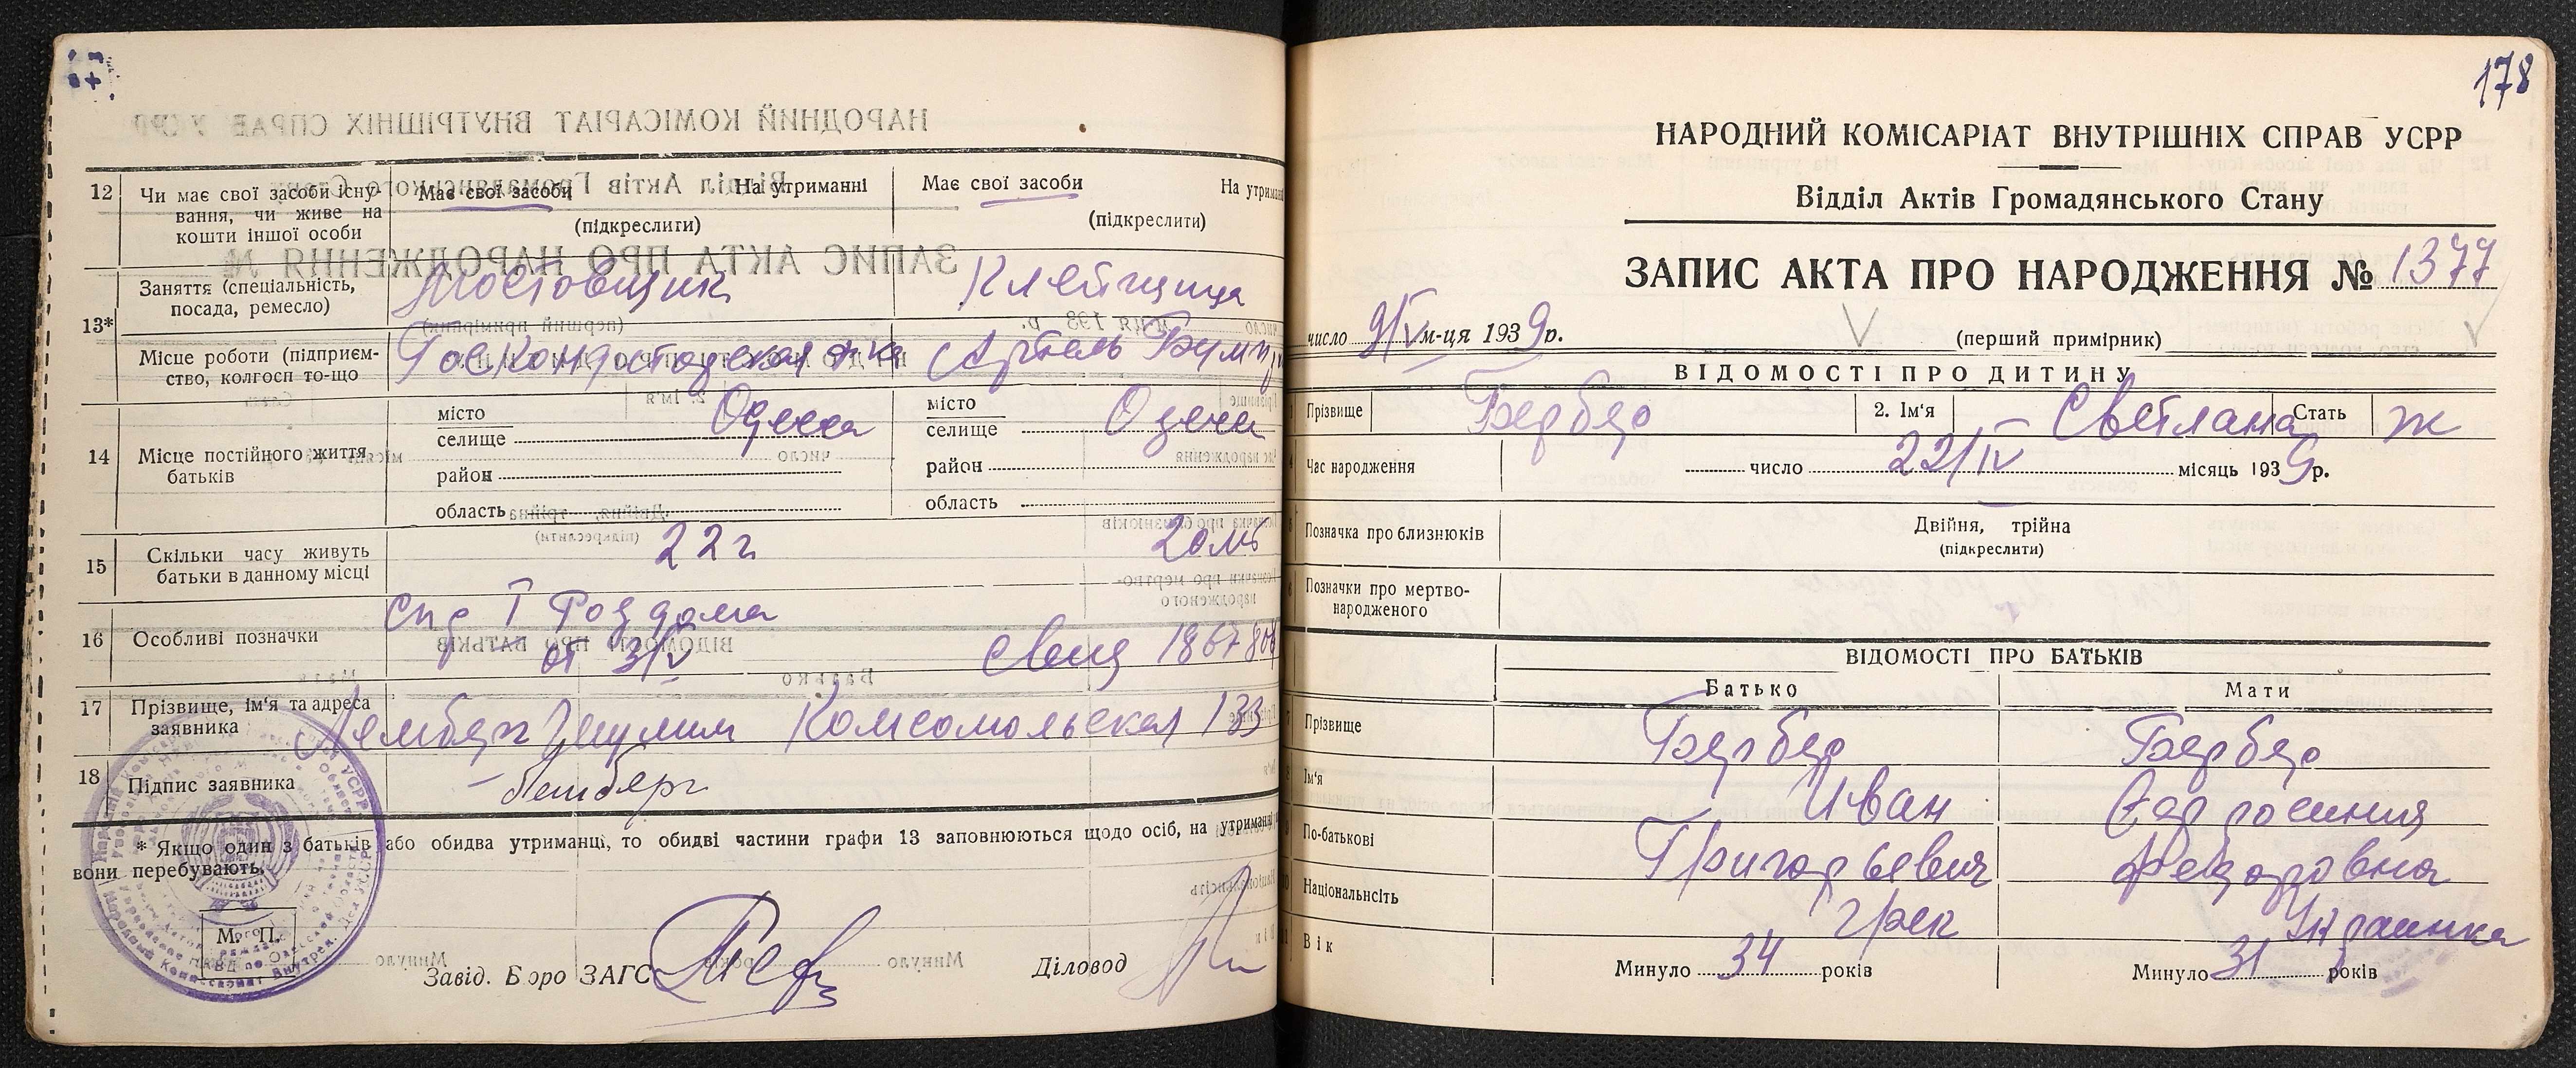 12 Чи має свої засоби існу-
вання, чи живе на
кошти іншої особи
Має свої засоби На утриманні
(підкреслити)
Має свої засоби На утриман
(підкреслити)
13* Заняття (спеціальність,
посада, ремесло)
Мостовщик
Клейщица
Місце роботи (підприєм-
ство, колгосп то-що
Артель
14 Місце постійного життя
батьків
місто
селище Одесса
район
область
місто
селище Одесса
район
область
15 Скільки часу живуть
батьки в данному місці
22 г
16 Особливі позначки
Спр I Роддома
от 3/V
17 Прізвище, ім'я та адреса
заявника
Комсомольская 133
18 Підпис заявника
* Якщо один з батьків або обидва утриманці, то обидві частини графи 13 заповнюються щодо осіб, на утриманні
вони перебувають.
М. П.
Завід. Бюро ЗАГС
Діловод
178
НАРОДНИЙ КОМІСАРІАТ ВНУТРІШНІХ СПРАВ УСРР
Відділ Актів Громадянського Стану
ЗАПИС АКТА ПРО НАРОДЖЕННЯ № 1377
число 9/V м-ця 1939 р.
(перший примірник)
ВІДОМОСТІ ПРО ДИТИНУ
Прізвище Бербер 2. Ім'я Светлана Стать ж
Час народження число 22/IV місяць 1939 р.
Позначка про близнюків
Двійня, трійня
(підкреслити)
Позначки про мертво-
народженого
ВІДОМОСТІ ПРО БАТЬКІВ
Батько Мати
Прізвище Бербер Бербер
Ім'я Иван
По-батькові Григорьевич Федоровна
Національність Грек Украинка
Вік Минуло 34 років Минуло 31 років